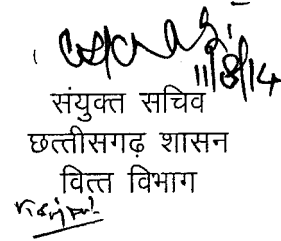 11/8/14
संयुक्त सचिव
छत्तीसगढ़ शासन
वित्त विभाग